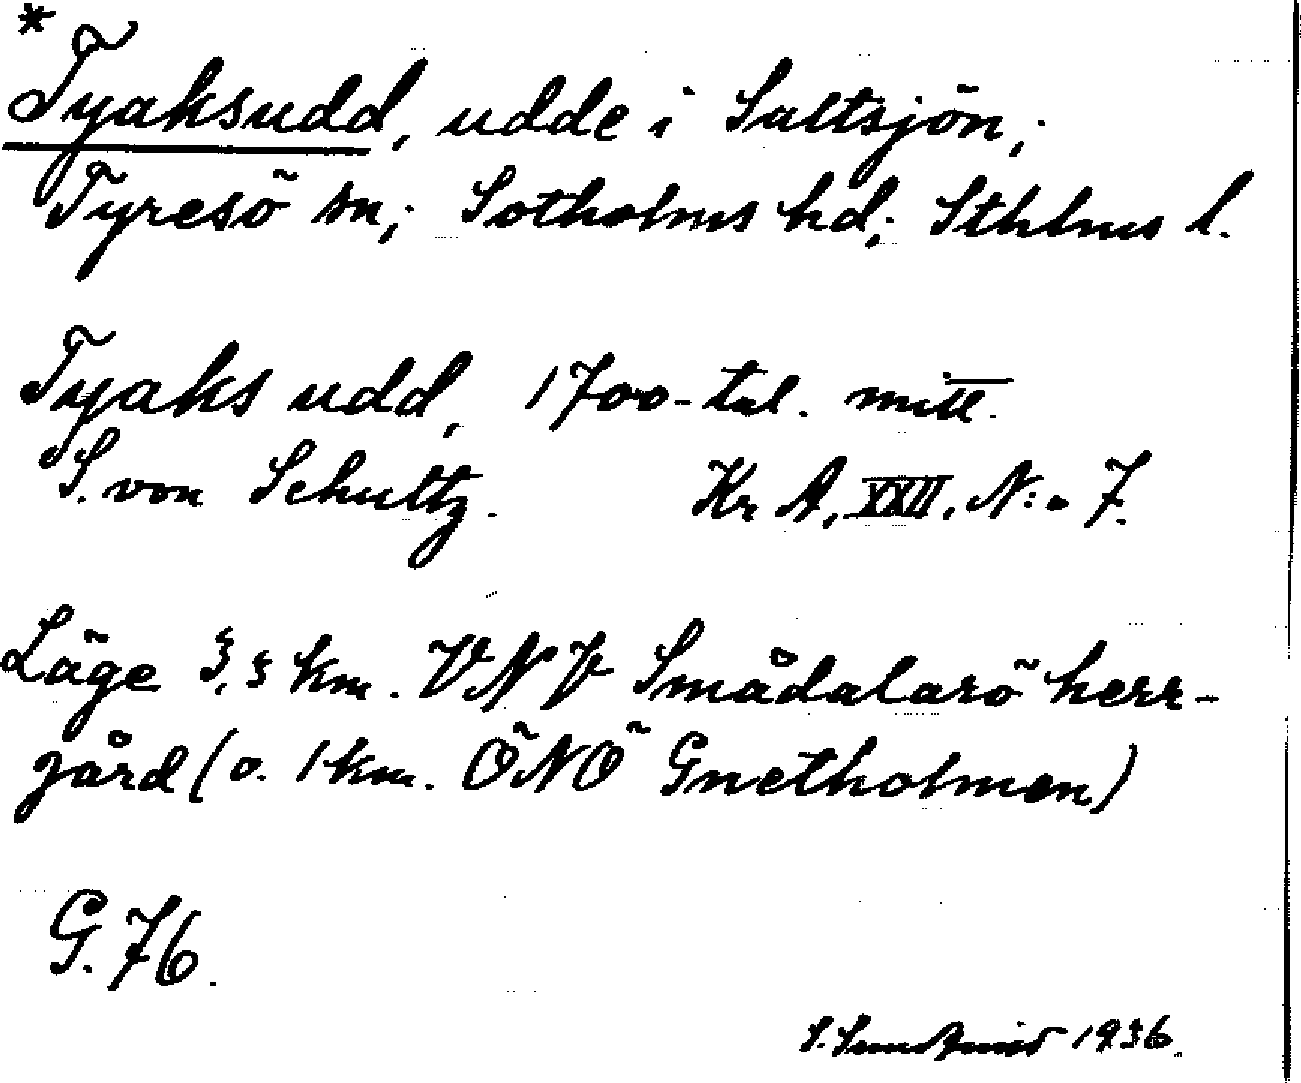 *
Tyaksudd, udde i Saltsjön,;
Tyresö sn,; Sotholms hd,; Sthlms l.
Tyaks udd, 1700-tal. mitt.
S. von Schultz. Kr A, XXII, N:o 7.
Läge 3,5 km. VNV Smådalarö herr-
gård (o. 1 km. ÖNÖ Gnetholmen)
G. 76.
S. 1936.